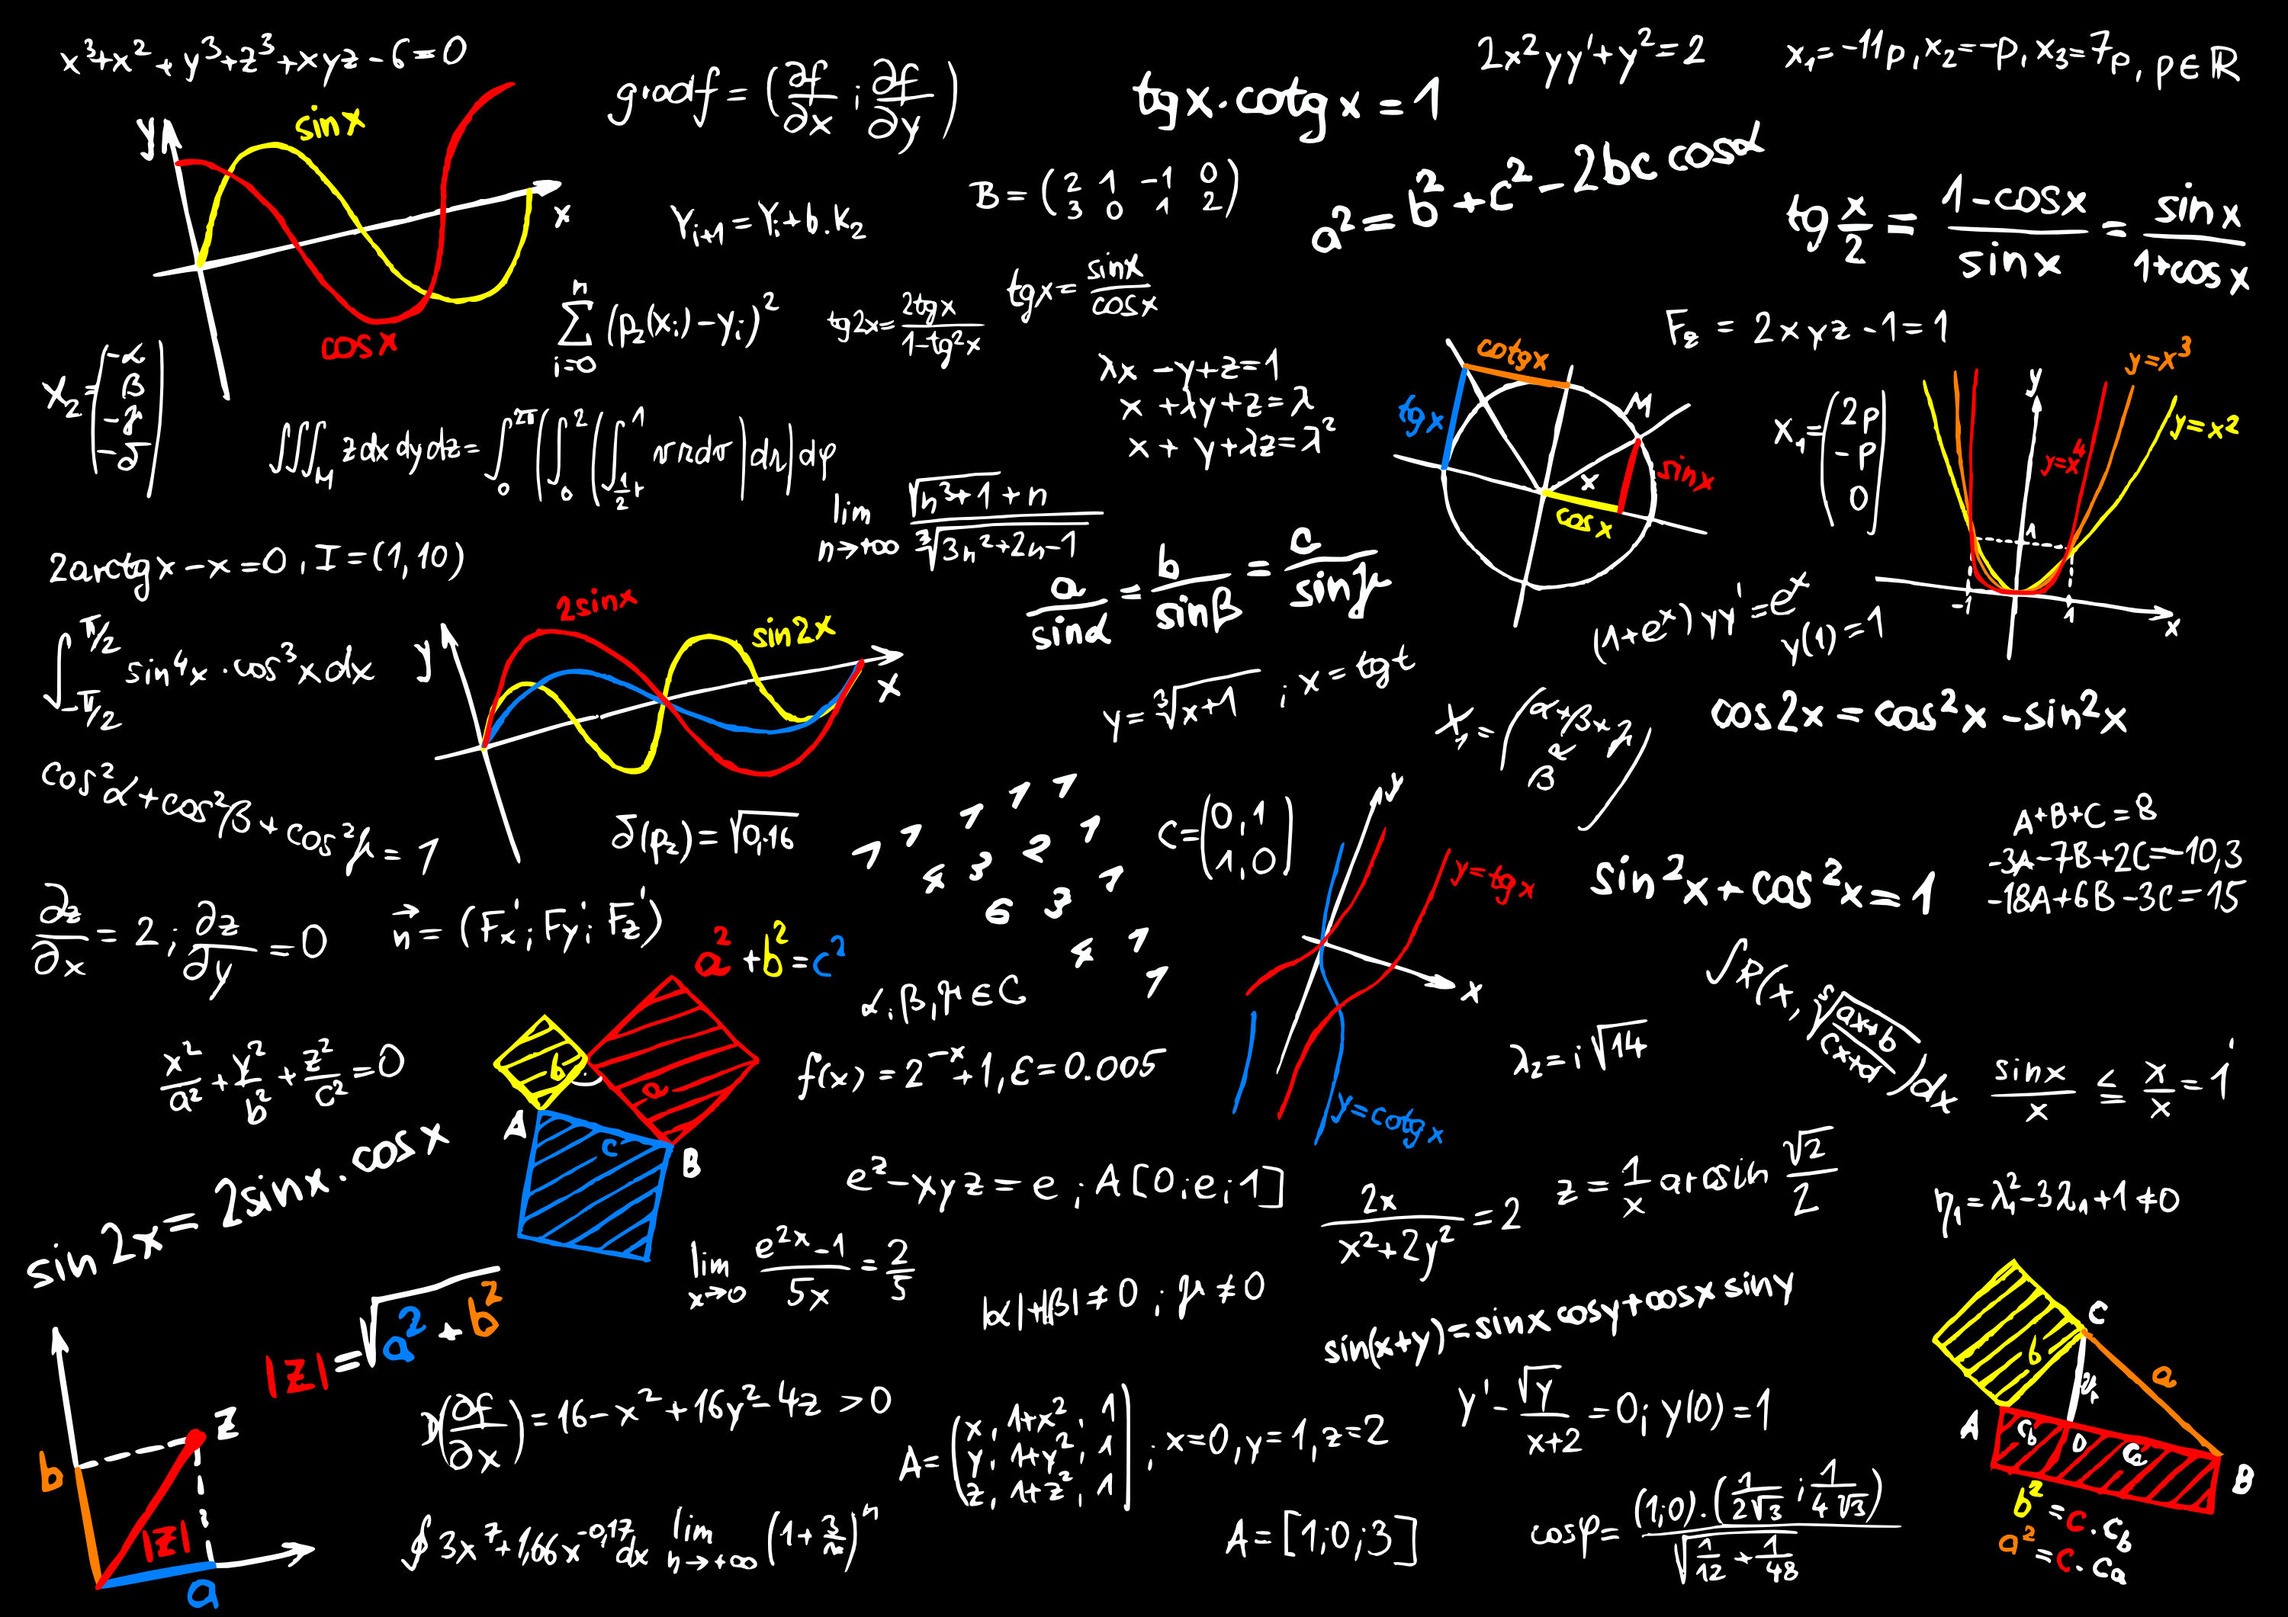 x³+x²+y³+z³+xyz-6=0
gradf = (∂f/∂x ; ∂f/∂y)
tgx·cotgx = 1
2x²yy'+y²=2
x₁=-11p, x₂=-p, x₃=7p, p∈ℝ
y
sinx
x
cosx
Yᵢ₊₁=Yᵢ+b.K₂
B = (2 1 -1 0
3 0 1 2)
a²=b²+c²-2bc cosα
tg x/2 = (1-cosx)/sinx = sinx/(1+cosx)
∑ i=0 n (p₂(xᵢ)-yᵢ)²
tg2x= 2tgx/(1-tg²x)
tgx= sinx/cosx
F_z = 2xyz-1=1
X₂= (-α
β
-γ
-δ)
λx-y+z=1
x+λy+z=λ
x+y+λz=λ²
cotgx
tgx
M
x
sinx
cosx
X₁= (2p
-p
0)
y=x³
y=x²
y=x⁴
y
1
-1
1
x
∫∫∫_M zdxdydz= ∫₀^2π (∫₀² (∫_½r¹ vrdv)dr)dφ
lim n→+∞ (√(n³+1)+n)/∛(3n²+2n-1)
2arctgx-x=0, I=(1,10)
a/sinα = b/sinβ = c/sinγ
(1+eˣ)yy'=eˣ
y(1)=1
∫_-π/2^π/2 sin⁴x·cos³xdx
y
2sinx
sin2x
x
y=∛(x+1) ; x=tgt
X₁= (α+β+γ
α
β)
cos2x=cos²x-sin²x
cos²α+cos²β+cos²γ=1
δ(p₂)=√0,16
1 1 1 1 1
4 3 2 1
6 3 1
4 1
1
C= (0,1
1,0)
y
y=tgx
x
y=cotgx
sin²x+cos²x=1
A+B+C=8
-3A-7B+2C=-10,3
-18A+6B-3C=15
∂z/∂x=2 ; ∂z/∂y=0
n⃗=(F'x; F'y; F'z)
a²+b²=c²
b
a
c
A
B
α,β,γ∈C
∫R(x, ⁵√((ax+b)/(cx+d)))dx
x²/a²+y²/b²+z²/c²=0
f(x)=2⁻ˣ+1, ε=0.005
λ₂=i√14
sinx/x ≤ x/x = 1
sin2x=2sinx·cosx
e^z-xyz=e ; A[0;e;1]
2x/(x²+2y²)=2
z= 1/x arcsin √2/2
η₁=λ₁²-3λ₁+1≠0
lim x→0 (e²ˣ-1)/5x = 2/5
|α|+|β|≠0 ; γ≠0
sin(x+y)=sinx cosy+cosx siny
|z|=√(a²+b²)
z
b
|z|
a
D(∂f/∂x)=16-x²+16y²-4z>0
A= (x, 1+x², 1
y, 1+y², 1
z, 1+z², 1) ; x=0, y=1, z=2
y'-√y/(x+2)=0; y(0)=1
C
b
a
v
A
c_b
D
c_a
B
b²=c·c_b
a²=c·c_a
∮3x⁷+1,66x^-0,17dx
lim n→+∞ (1+3/n)ⁿ
A=[1;0;3]
cosφ= (1;0).(1/2√3 ; 1/4√3)/√(1/12+1/48)